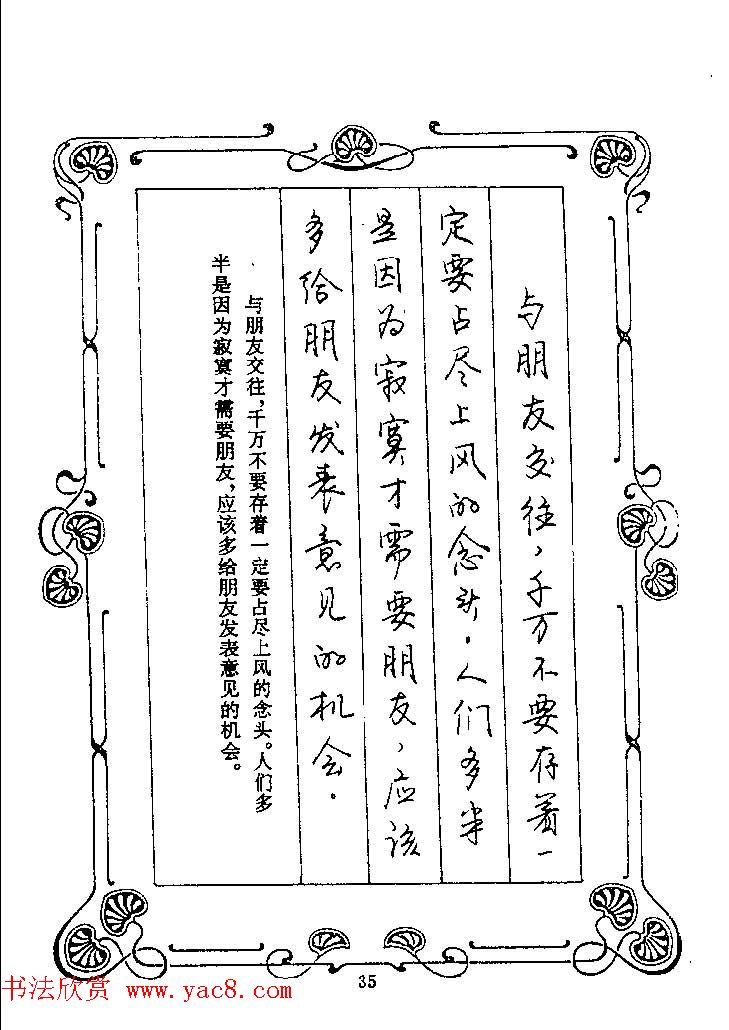 与朋友交往，千万不要存着一
定要占尽上风的念头。人们多半
是因为寂寞才需要朋友，应该
多给朋友发表意见的机会。
与朋友交往，千万不要存着一定要占尽上风的念头。人们多
半是因为寂寞才需要朋友，应该多给朋友发表意见的机会。
35
书法欣赏 www.yac8.com